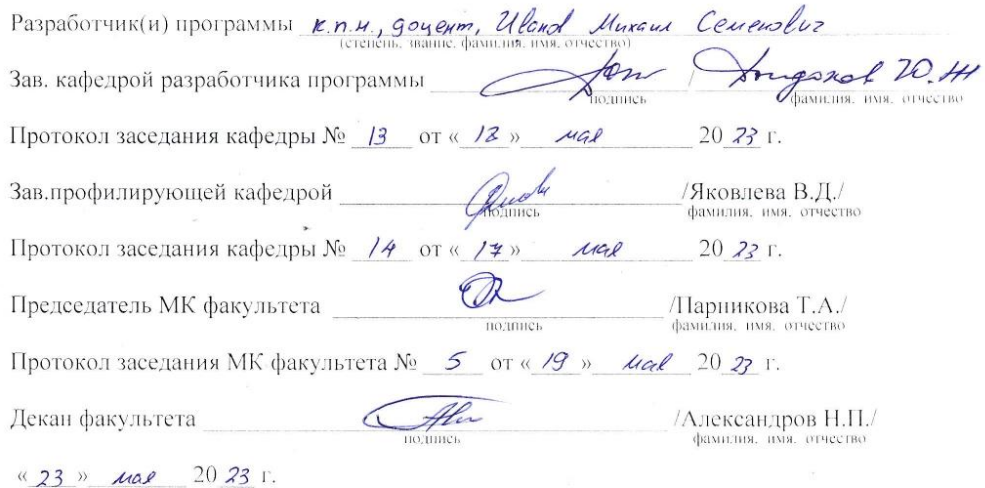 Разработчик(и) программы к.п.н., доцент, Иванов Михаил Семенович
(степень, звание, фамилия, имя, отчество)
Зав. кафедрой разработчика программы / Ю.Н
подпись фамилия, имя, отчество
Протокол заседания кафедры № 13 от « 12 » мая 20 23 г.
Зав.профилирующей кафедрой /Яковлева В.Д./
подпись фамилия, имя, отчество
Протокол заседания кафедры № 14 от « 17 » мая 20 23 г.
Председатель МК факультета /Парникова Т.А./
подпись фамилия, имя, отчество
Протокол заседания МК факультета № 5 от « 19 » мая 20 23 г.
Декан факультета /Александров Н.П./
подпись фамилия, имя, отчество
« 23 » мая 20 23 г.